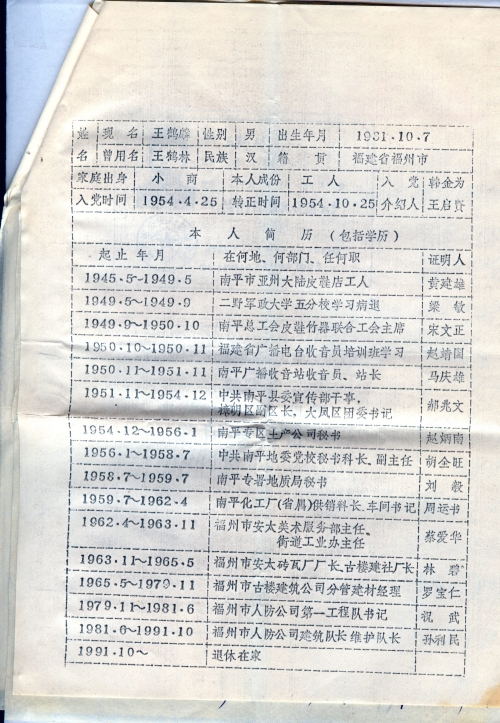 姓 现 名 王鹤麟 性别 男 出生年月 1931.10.7
名 曾用名 王鹤林 民族 汉 籍 贯 福建省福州市
家庭出身 小 商 本人成份 工 人 入 党 韩金为
入党时间 1954.4.25 转正时间 1954.10.25 介绍人 王启贵
本 人 简 历 (包括学历)
起止年月 在何地、何部门、任何职 证明人
1945.5~1949.5 南平市亚州大陆皮鞋店工人 黄建雄
1949.5~1949.9 二野军政大学五分校学习病退 梁 敏
1949.9~1950.10 南平总工会皮鞋竹器联合工会主席 宋文正
1950.10~1950.11 福建省广播电台收音员培训班学习 赵靖国
1950.11~1951.11 南平广播收音站收音员、站长 马庆雄
1951.11~1954.12 中共南平县委宣传部干事,
区副区长,大凤区团委书记 郝兆文
1954.12~1956.1 南平专区土产公司秘书 赵炳南
1956.1~1958.7 中共南平地委党校秘书科长、副主任 胡企旺
1958.7~1959.7 南平专署地质局秘书 刘 毅
1959.7~1962.4 南平化工厂(省属)供销科长、车间书记 周运书
1962.4~1963.11 福州市安太美术服务部主任、
街道工业办主任 蔡爱华
1963.11~1965.5 福州市安太砖瓦厂厂长、古楼建社厂长 林 碧
1965.5~1979.11 福州市古楼建筑公司分管建材经理 罗宝仁
1979.11~1981.6 福州市人防公司第一工程队书记 祝 武
1981.6~1991.10 福州市人防公司建筑队长 维护队长 孙利民
1991.10~ 退休在家